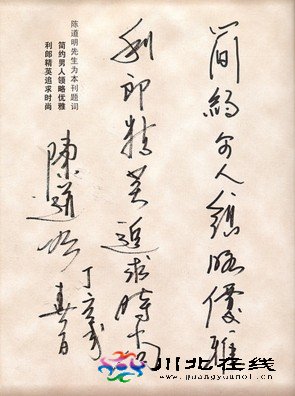 簡約男人领略優雅
利郎精英追求時尚
陳道明
丁亥
陈道明先生为本刊题词
简约男人领略优雅
利郎精英追求时尚
川北在线